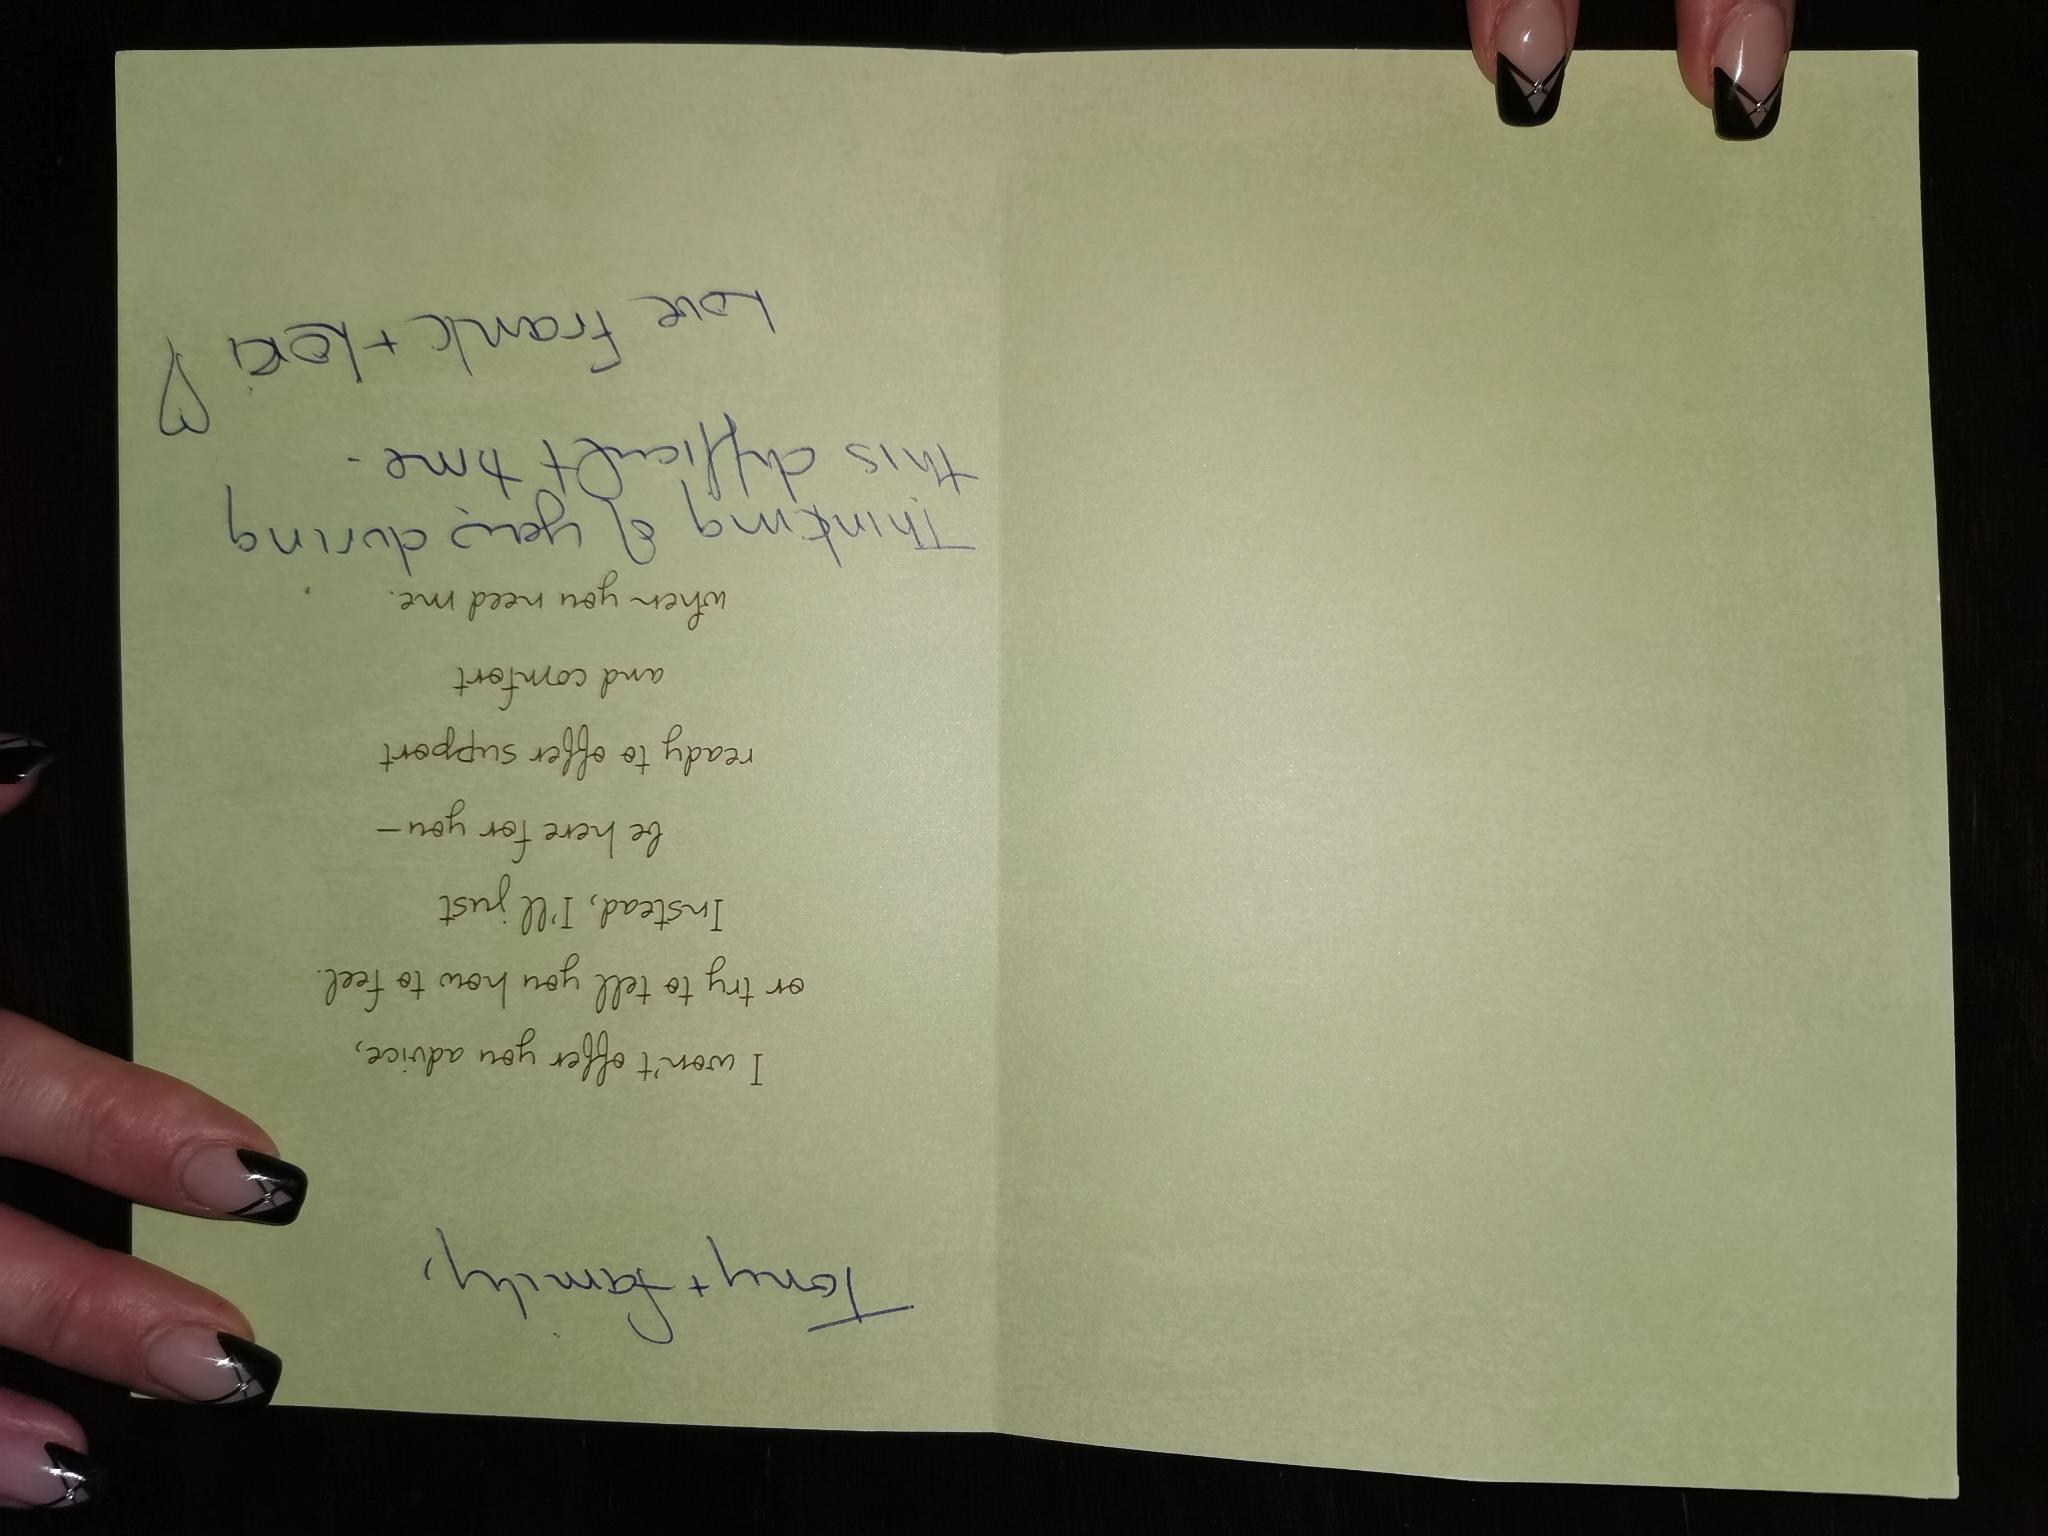 Tony + family,
I won't offer you advice,
or try to tell you how to feel.
Instead, I'll just
be here for you—
ready to offer support
and comfort
when you need me.
Thinking of you during
this difficult time.
Love Frank +